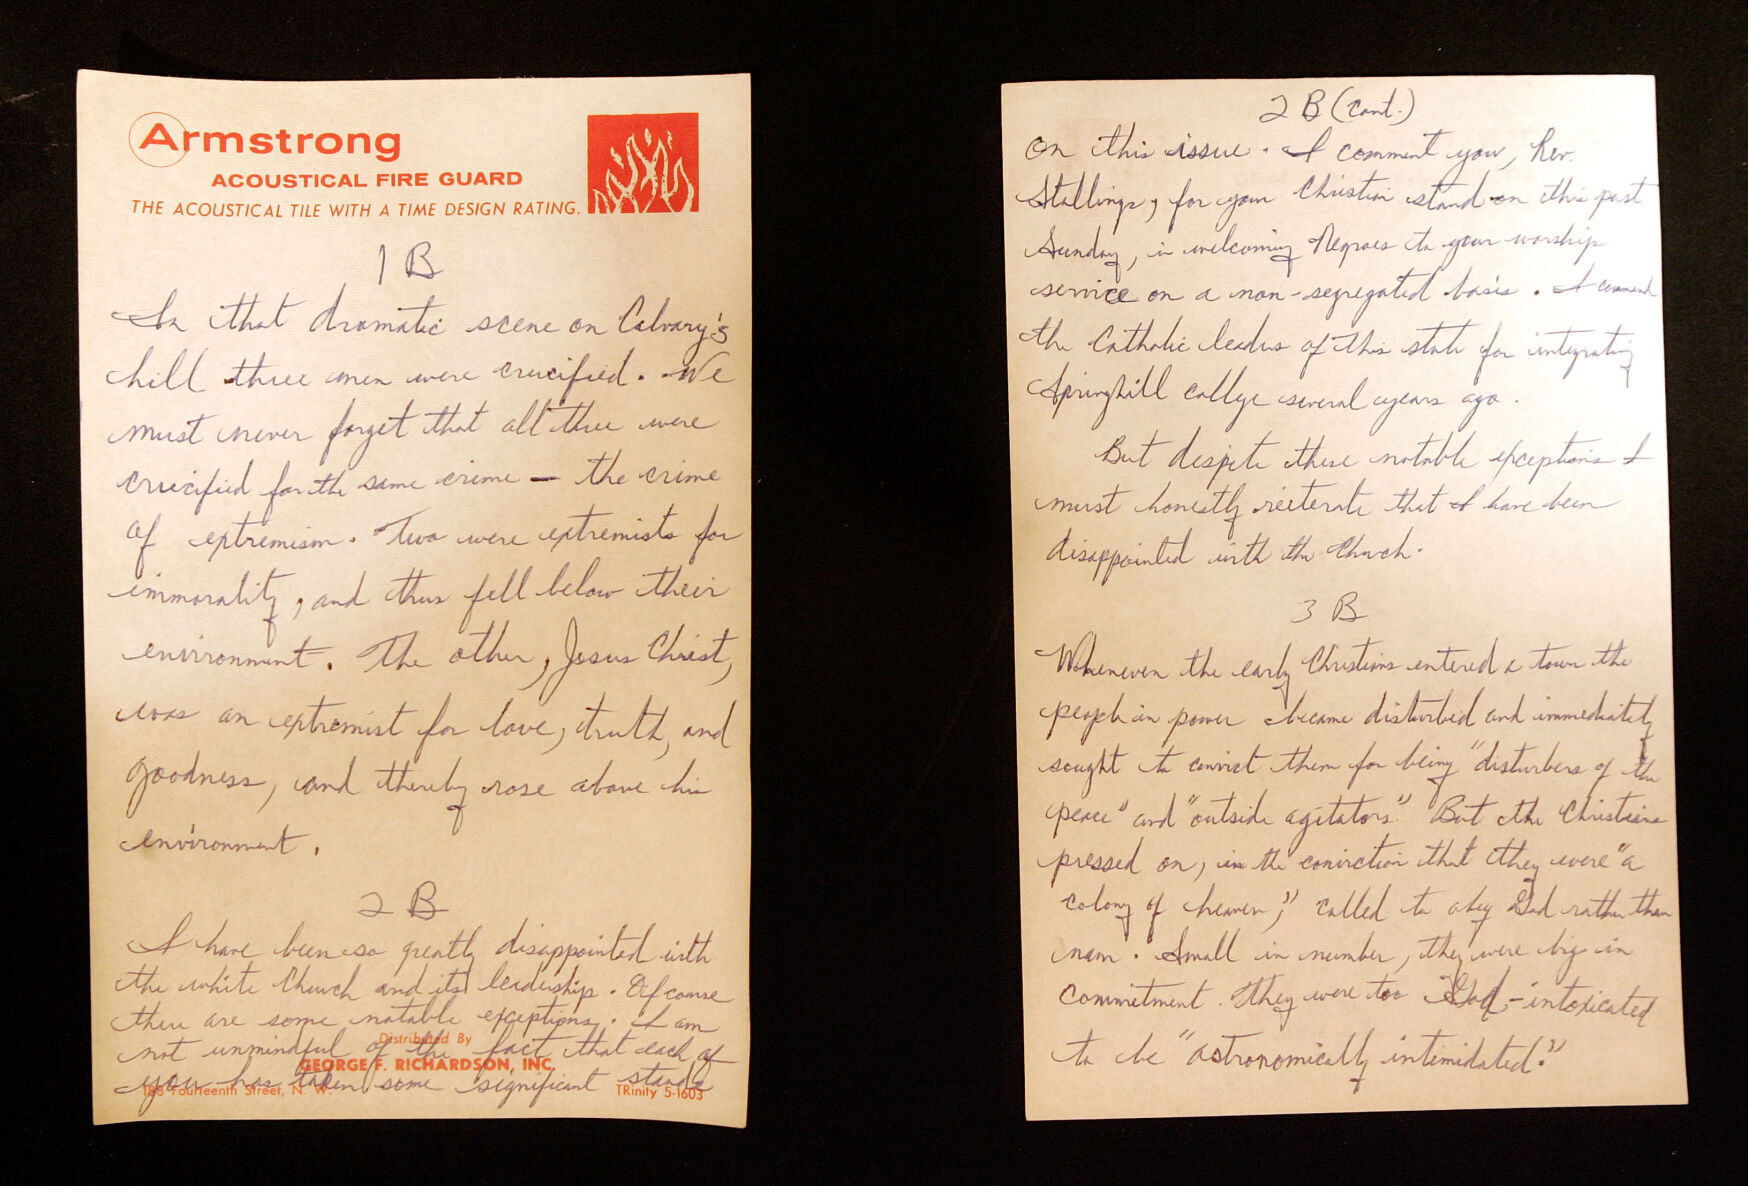 Armstrong
ACOUSTICAL FIRE GUARD
THE ACOUSTICAL TILE WITH A TIME DESIGN RATING.
1 B
In that dramatic scene on Calvary's
hill three men were crucified. We
must never forget that all three were
crucified for the same crime — the crime
of extremism. Two were extremists for
immorality, and thus fell below their
environment. The other, Jesus Christ,
was an extremist for love, truth, and
goodness, and thereby rose above his
environment.
2 B
I have been so greatly disappointed with
the white Church and its leadership. Of course
there are some notable exceptions. I am
not unmindful of the fact that each of
you has taken some significant stands
Distributed By
GEORGE F. RICHARDSON, INC.
Fourteenth Street, N. W.
TRinity 5-1603
2 B (cont.)
on this issue. I comment you, Rev.
Stallings, for your Christian stand on this past
Sunday, in welcoming Negroes to your worship
service on a non-segregated basis. I commend
the Catholic leaders of this state for integrating
Springhill college several years ago.
But despite these notable exceptions I
must honestly reiterate that I have been
disappointed with the Church.
3 B
Whenever the early Christians entered a town the
people in power became disturbed and immediately
sought to convict them for being "disturbers of the
peace" and "outside agitators." But the Christians
pressed on, in the conviction that they were "a
colony of heaven," called to obey God rather than
man. Small in number, they were big in
commitment. They were too God-intoxicated
to be "astronomically intimidated."